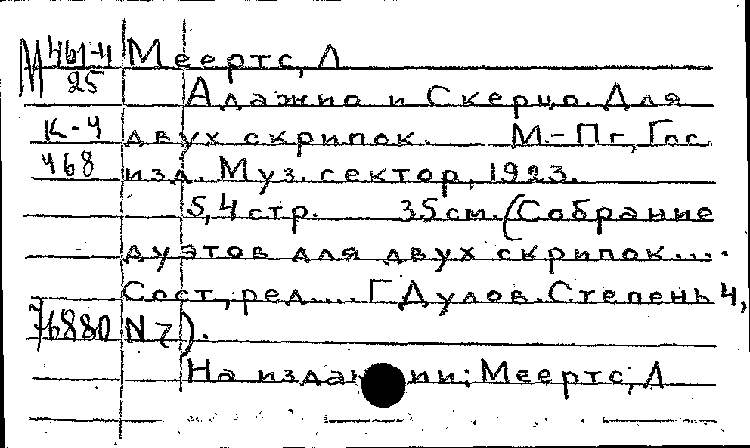 М 461-4 Меертс, Л
25 Адажио и Скерцо. Для
К-4 двух скрипок. М.-Пг, Гос
468 изд. Муз. сектор, 1923.
5,4 стр. 35 см. (Собрание
дуэтов для двух скрипок....
Сост., ред.... Г Дулов. Степень 4,
76880 N 7).
На издании: Меертс, Л